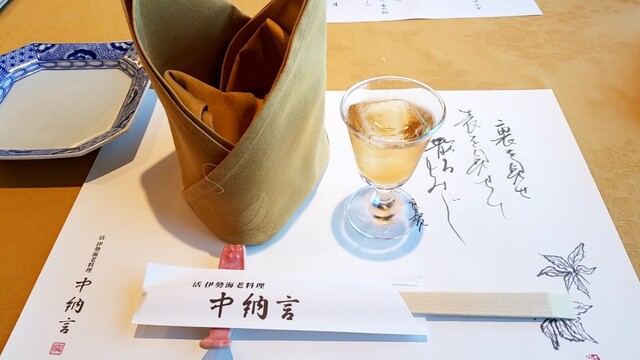 裏を見せ
表を見せて
散るもみじ
活 伊勢海老料理
中納言
活 伊勢海老料理
中納言